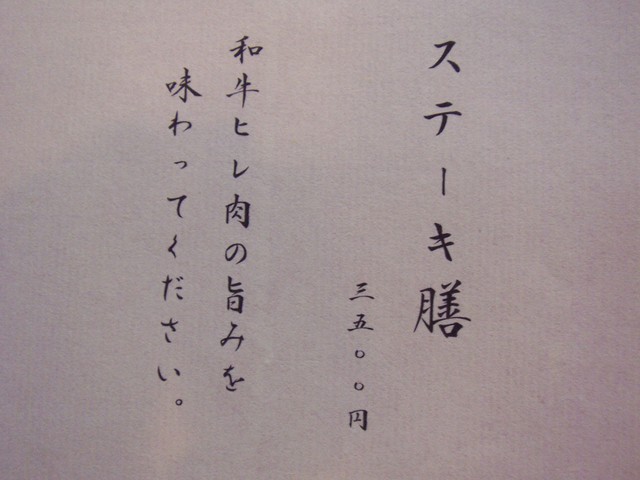 ステーキ膳
三五〇〇円
和牛ヒレ肉の旨みを
味わってください。